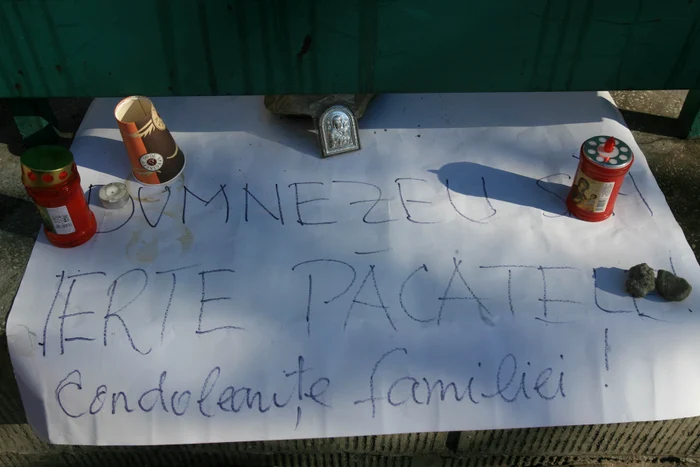 DUMNEZEU SĂ-I
IERTE PĂCATELE!
Condoleanțe familiei!